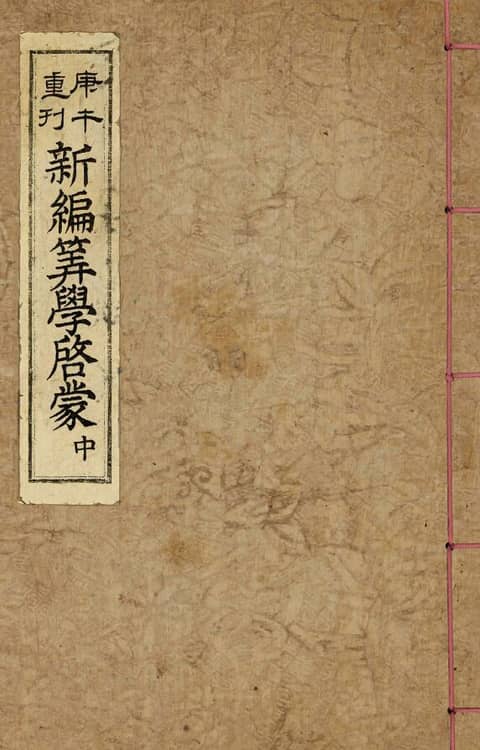 庚午
重刊
新編筭學啓蒙 中